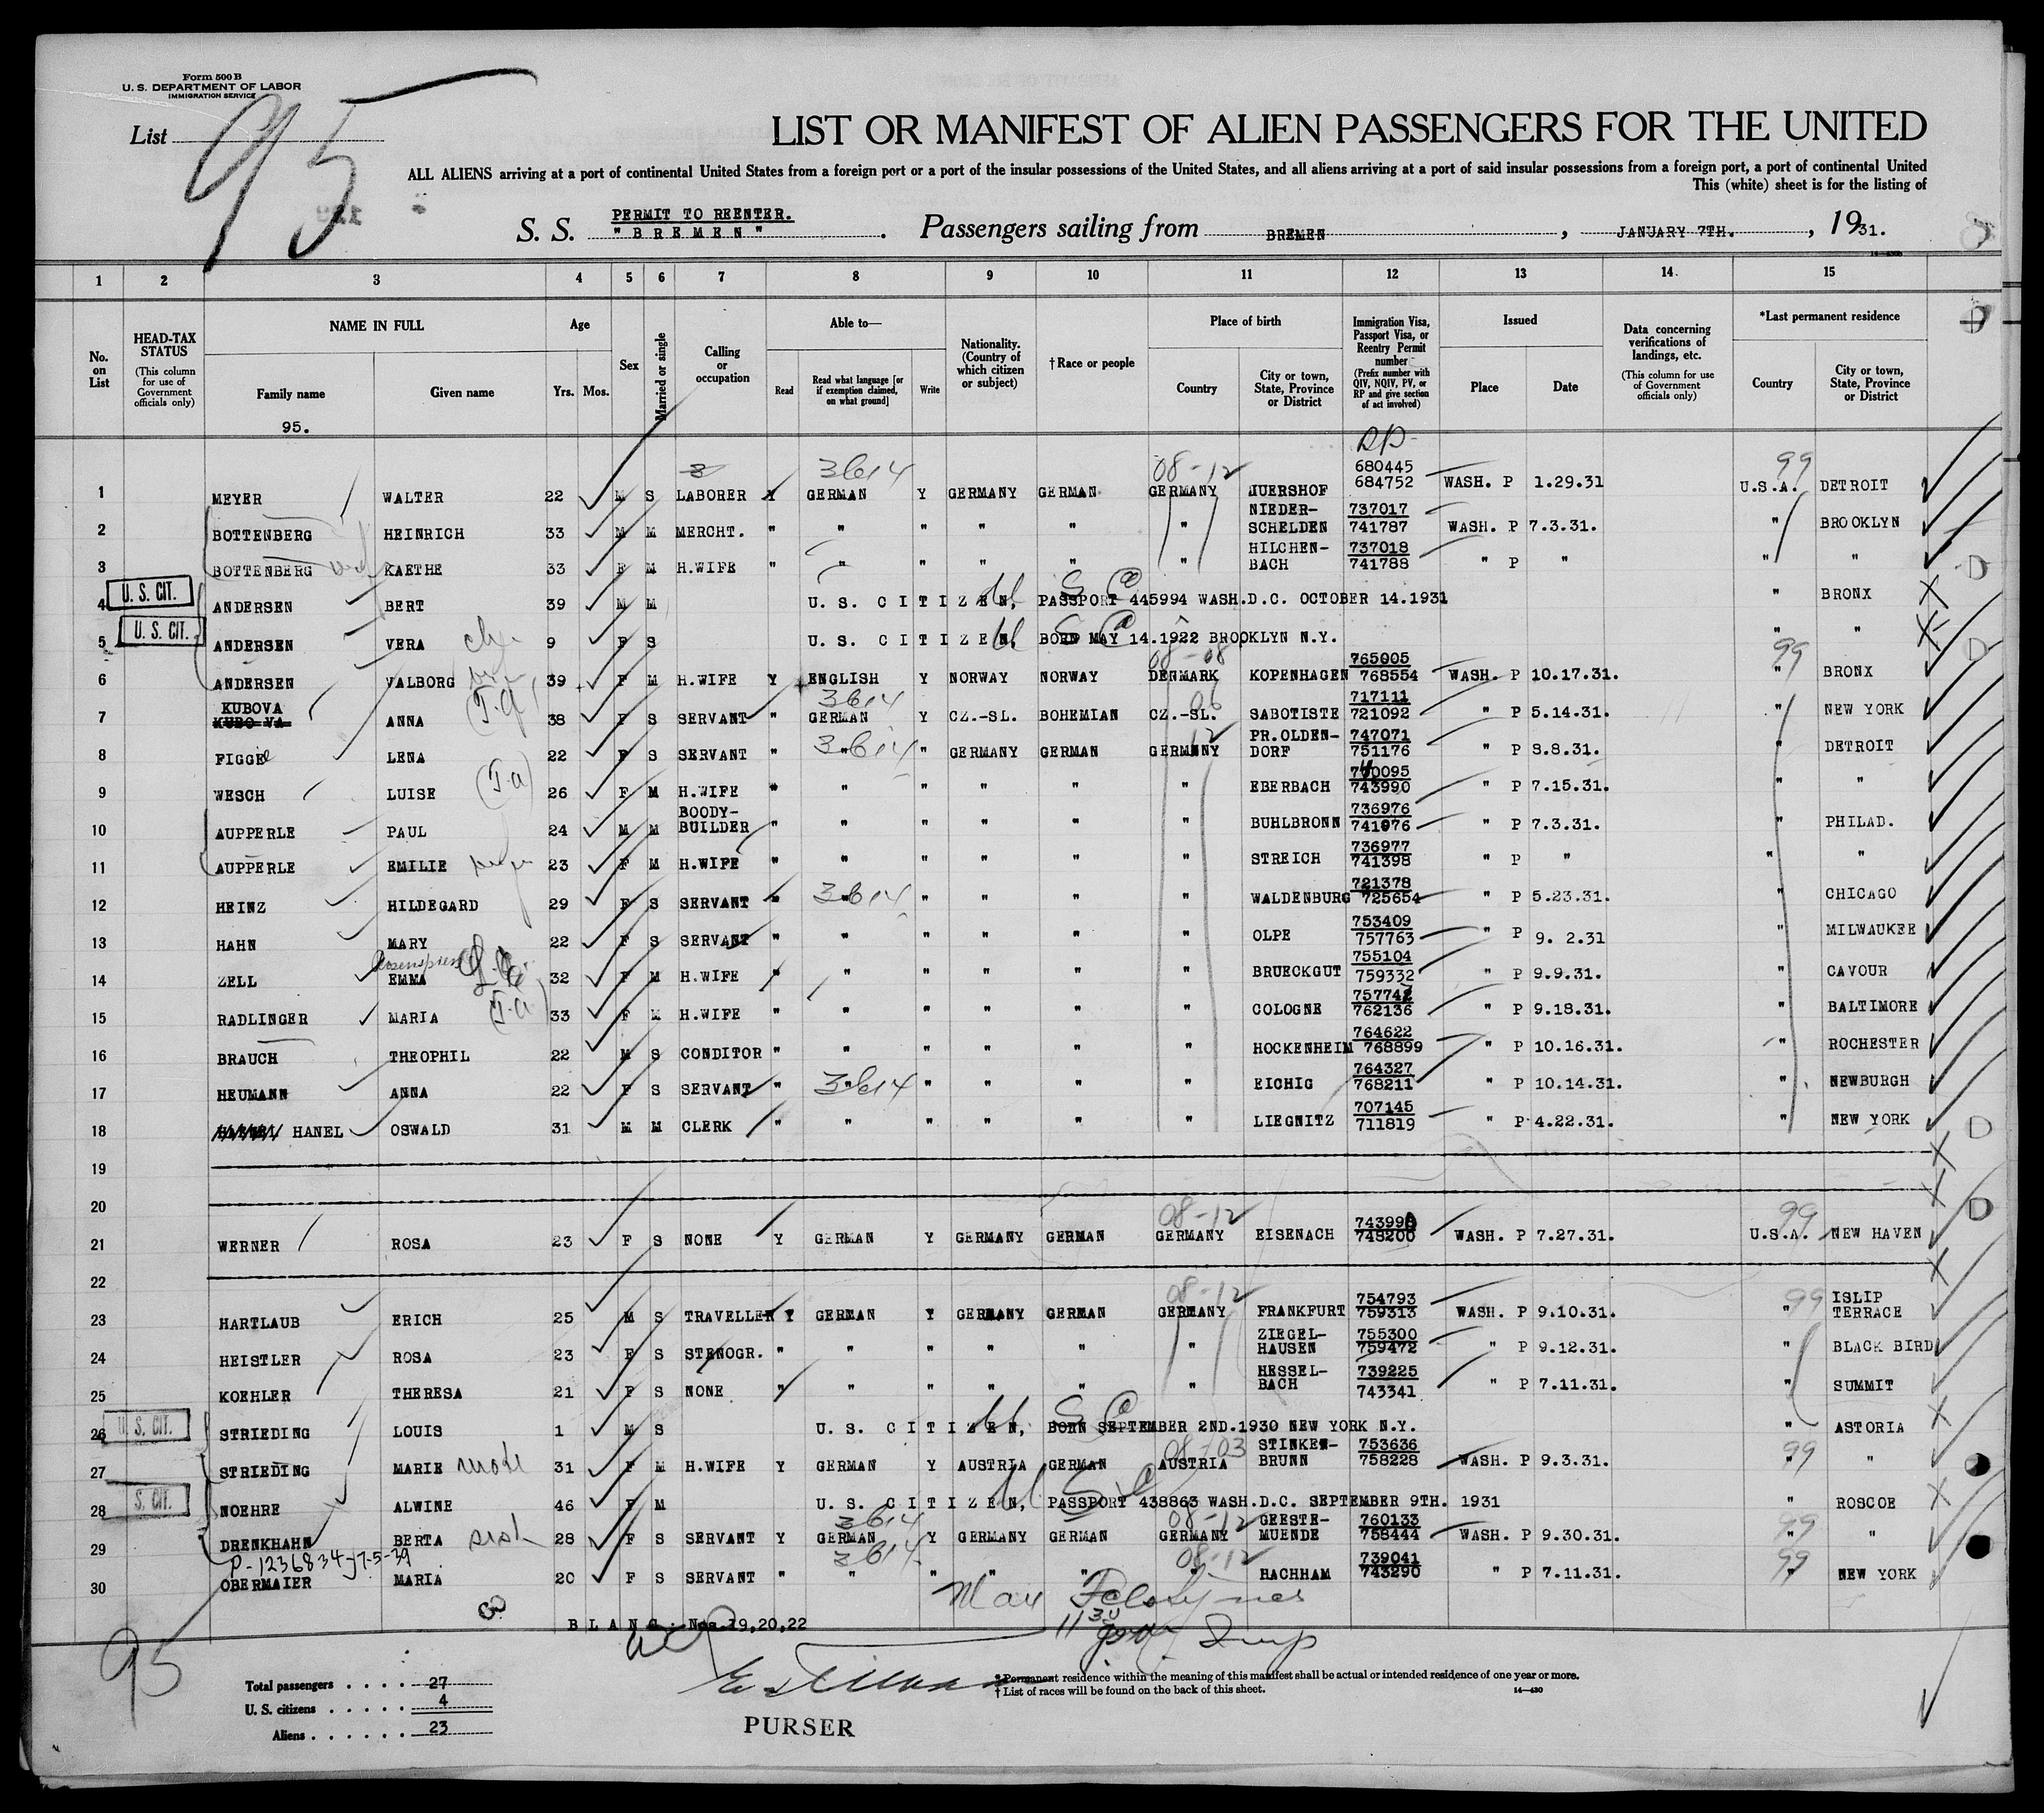 Form 500 B
U. S. DEPARTMENT OF LABOR
IMMIGRATION SERVICE
List 95
LIST OR MANIFEST OF ALIEN PASSENGERS FOR THE UNITED
ALL ALIENS arriving at a port of continental United States from a foreign port or a port of the insular possessions of the United States, and all aliens arriving at a port of said insular possessions from a foreign port, a port of continental United
This (white) sheet is for the listing of
PERMIT TO REENTER.
S. S. "BREMEN". Passengers sailing from BREMEN, JANUARY 7TH., 1931.
1 2 3 4 5 6 7 8 9 10 11 12 13 14 15
No. on List
HEAD-TAX STATUS (This column for use of Government officials only)
NAME IN FULL Family name Given name
Age Yrs. Mos.
Sex
Married or single
Calling or occupation
Able to— Read Read what language [or if exemption claimed, on what ground] Write
Nationality. (Country of which citizen or subject)
† Race or people
Place of birth Country City or town, State, Province or District
Immigration Visa, Passport Visa, or Reentry Permit number (Prefix number with QIV, NQIV, PV, or RP and give section of act involved)
Issued Place Date
Data concerning verifications of landings, etc. (This column for use of Government officials only)
*Last permanent residence Country City or town, State, Province or District
95.
3614 08-12 99
1 MEYER WALTER 22 M S LABORER Y GERMAN Y GERMANY GERMAN GERMANY 680445 684752 WASH. P 1.29.31 U.S.A. DETROIT
2 BOTTENBERG HEINRICH 33 M M MERCHT. " " " " " " NIEDER-SCHELDEN 737017 741787 WASH. P 7.3.31. " BROOKLYN
3 BOTTENBERG KAETHE 33 F M H.WIFE " " " " " " HILCHEN-BACH 737018 741788 " P " " "
U. S. CIT.
4 ANDERSEN BERT 39 M M U. S. CITIZEN, PASSPORT 445994 WASH.D.C. OCTOBER 14.1931 " BRONX
U. S. CIT.
5 ANDERSEN VERA 9 F S U. S. CITIZEN, BORN MAY 14.1922 BROOKLYN N.Y. " "
08-08 99
6 ANDERSEN VALBORG 39 F M H.WIFE Y ENGLISH Y NORWAY NORWAY DENMARK KOPENHAGEN 765005 768554 WASH. P 10.17.31. " BRONX
3614
7 KUBOVA KUBO VA ANNA 38 F S SERVANT " GERMAN Y CZ.-SL. BOHEMIAN CZ.-SL. SABOTISTE 717111 721092 " P 5.14.31. " NEW YORK
3614 12
8 FIGGE LENA 22 F S SERVANT " " " GERMANY GERMAN GERMANY PR.OLDEN-DORF 747071 751176 " P 8.8.31. " DETROIT
9 WESCH LUISE 26 F M H.WIFE " " " " " " EBERBACH 740095 743990 " P 7.15.31. " "
10 AUPPERLE PAUL 24 M M BOODY-BUILDER " " " " " " BUHLBRONN 736976 741076 " P 7.3.31. " PHILAD.
11 AUPPERLE EMILIE 23 F M H.WIFE " " " " " " STREICH 736977 741398 " P " " "
3614
12 HEINZ HILDEGARD 29 F S SERVANT " " " " " " WALDENBURG 721378 725654 " P 5.23.31. " CHICAGO
13 HAHN MARY 22 F S SERVANT " " " " " " OLPE 753409 757763 " P 9. 2.31 " MILWAUKEE
14 ZELL EMMA 32 F M H.WIFE " " " " " " BRUECKGUT 755104 759332 " P 9.9.31. " CAVOUR
15 RADLINGER MARIA 33 F M H.WIFE " " " " " " COLOGNE 757742 762136 " P 9.18.31. " BALTIMORE
16 BRAUCH THEOPHIL 22 M S CONDITOR " " " " " " HOCKENHEIM 764622 768899 " P 10.16.31. " ROCHESTER
3614
17 HEUMANN ANNA 22 F S SERVANT " " " " " " EICHIG 764327 768211 " P 10.14.31. " NEWBURGH
18 HANEL OSWALD 31 M M CLERK " " " " " " LIEGNITZ 707145 711819 " P 4.22.31. " NEW YORK
19
20
08-12 99
21 WERNER ROSA 23 F S NONE Y GERMAN Y GERMANY GERMAN GERMANY EISENACH 743990 748200 WASH. P 7.27.31. U.S.A. NEW HAVEN
22
08-12 99
23 HARTLAUB ERICH 25 M S TRAVELLER Y GERMAN Y GERMANY GERMAN GERMANY FRANKFURT 754793 759313 WASH. P 9.10.31. " ISLIP TERRACE
24 HEISTLER ROSA 23 F S STENOGR. " " " " " " ZIEGEL-HAUSEN 755300 759472 " P 9.12.31. " BLACK BIRD
25 KOEHLER THERESA 21 F S NONE " " " " " " HESSEL-BACH 739225 743341 " P 7.11.31. " SUMMIT
U. S. CIT.
26 STRIEDING LOUIS 1 M S U. S. CITIZEN, BORN SEPTEMBER 2ND.1930 NEW YORK N.Y. " ASTORIA
08-03 99
27 STRIEDING MARIE 31 F M H.WIFE Y GERMAN Y AUSTRIA GERMAN AUSTRIA STINKEN-BRUNN 753636 758228 WASH. P 9.3.31. " "
S. CIT.
28 NOEHRE ALWINE 46 F M U. S. CITIZEN, PASSPORT 438863 WASH.D.C. SEPTEMBER 9TH. 1931 " ROSCOE
3614 08-12 99
29 DRENKHAHN BERTA 28 F S SERVANT Y GERMAN Y GERMANY GERMAN GERMANY GEESTE-MUENDE 760133 758444 WASH. P 9.30.31. " "
P-1236834-7-5-39 3614 08-12 99
30 OBERMAIER MARIA 20 F S SERVANT " " " " " " HACHHAM 739041 743290 " P 7.11.31. " NEW YORK
BLANC: Nos 19,20,22
95
Total passengers . . . . 27
U. S. citizens . . . . . 4
Aliens . . . . . . 23
PURSER
* Permanent residence within the meaning of this manifest shall be actual or intended residence of one year or more.
† List of races will be found on the back of this sheet.
14—430